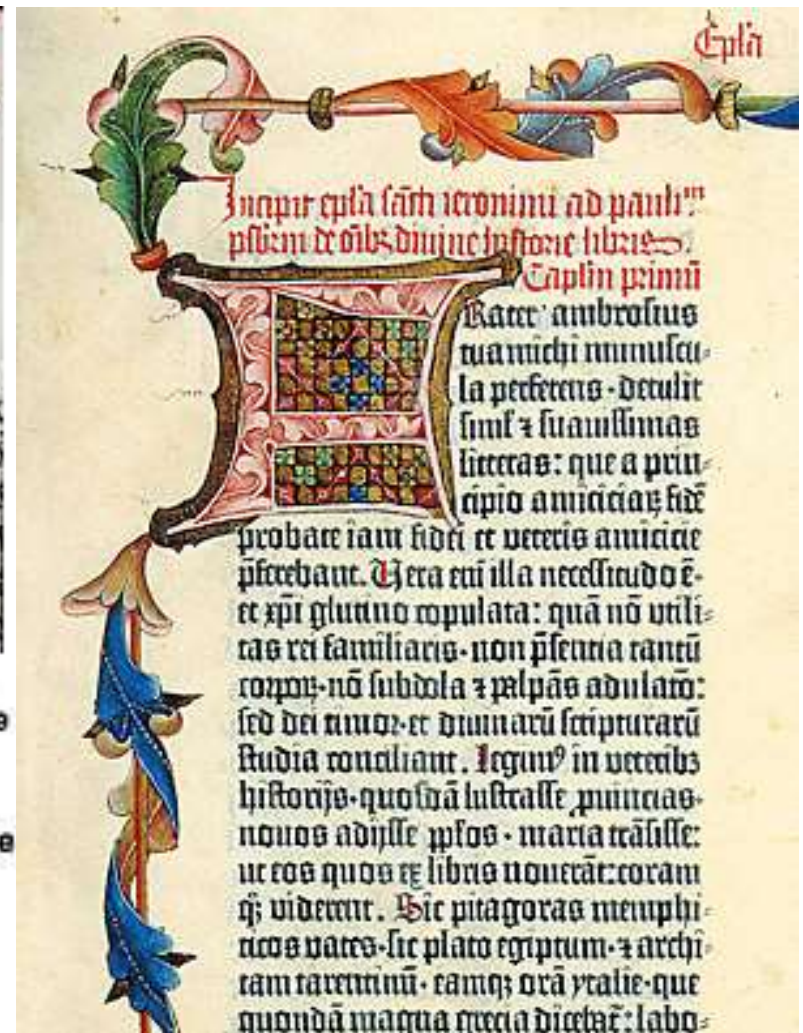 Epl̄a
Incipit epl̄a sc̄ti ieronimi ad pauliᵘᵐ
pſbr̄m de oībꝫ diuine hiſtorie libris
Cāpl̄m primū
Frater ambroſius
tua michi munuſcu⸗
la perferens · detulit
ſimĺ ⁊ ſuauiſſimas
litteras: que a prin⸗
cipio amiciciaꝝ fidē
probate iam fidei et veteris amicicie
p̄ferebant. Uera eni illa neceſſitudo ē·
et xp̄i glutino copulata: quā nō vtili⸗
tas rei familiaris· non p̄ſentia tantū
corpoꝝ· nō ſubdola ⁊ palpās adulatō:
ſed dei timor· et diuinarū ſcripturarū
ſtudia conciliant. Legimꝰ in veteribꝫ
hiſtorijs· quoſdā luſtraſſe ꝓuincias·
nouos adijſſe pp̄los · maria trāſiſſe:
ut eos quos ex libris nouerāt: coram
qꝫ viderent. Sic pitagoras memphi⸗
ticos vates· ſic plato egiptum· ⁊ archi⸗
tam tarentinū· eamqꝫ orā ytalie· que
quondā magna grecia dicebat̄: labo⸗
e
e